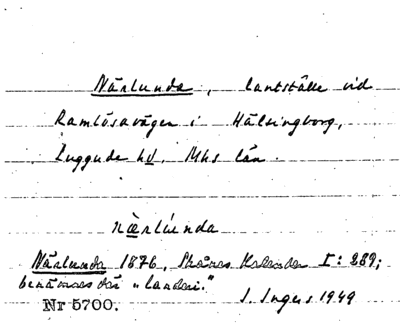 Närlunda, lantställe vid
Ramlösavägen i Hälsingborg,
Luggude hd, Mhs län.
närlúnda
Närlunda 1876, Skånes Kalender I: 289;
benämnes där "landeri."
Nr 5700. J. Ingers 1949